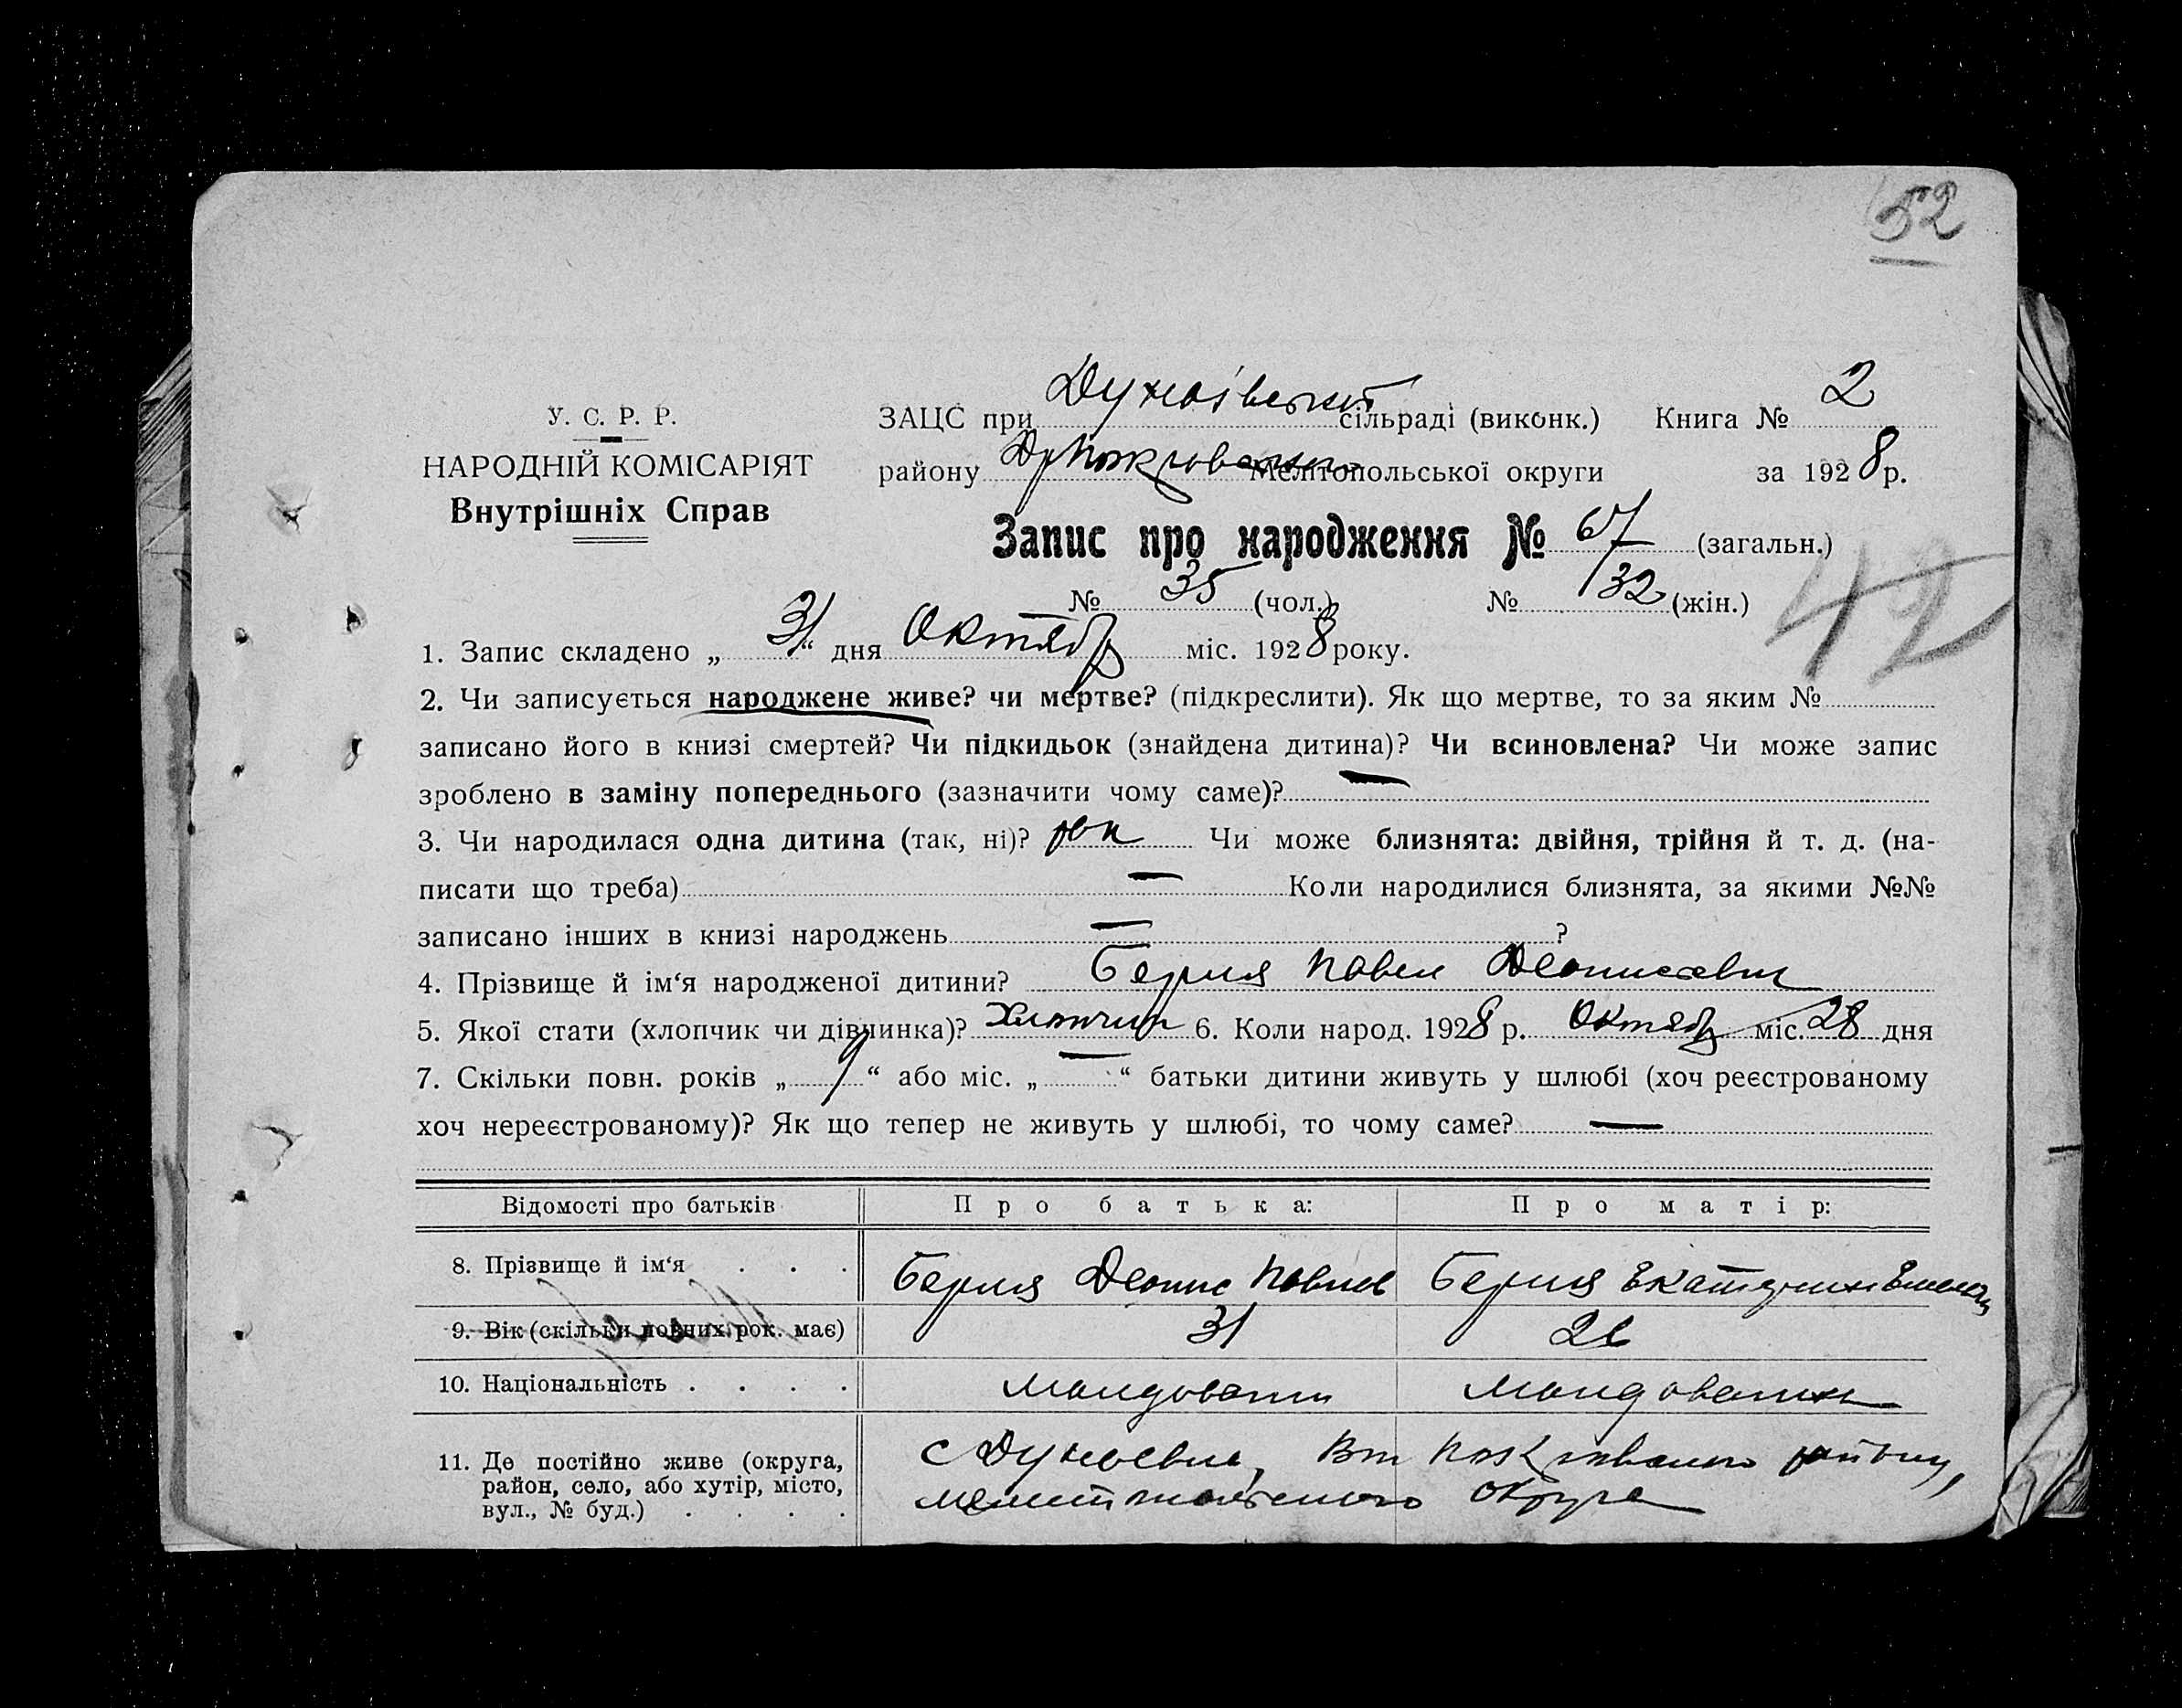 52
У. С. Р. Р.
НАРОДНІЙ КОМІСАРІЯТ
Внутрішніх Справ
ЗАЦС при Дунаївській сільраді (виконк.) Книга № 2
району Мелітопольської округи за 1928 р.
Запис про народження № 67 (загальн.)
№ 35 (чол.) № 32 (жін.)
42
1. Запис складено „31“ дня Октябр міс. 1928 року.
2. Чи записується народжене живе? чи мертве? (підкреслити). Як що мертве, то за яким №
записано його в книзі смертей? Чи підкидьок (знайдена дитина)? Чи всиновлена? Чи може запис
зроблено в заміну попереднього (зазначити чому саме)? —
3. Чи народилася одна дитина (так, ні)? Чи може близнята: двійня, трійня й т. д. (на-
писати що треба) — Коли народилися близнята, за якими №№
записано інших в книзі народжень — ?
4. Прізвище й ім‘я народженої дитини? Павел
5. Якої стати (хлопчик чи дівчинка)? Хлопчик 6. Коли народ. 1928 р. Октябр міс. 28 дня
7. Скільки повн. років „9“ або міс. „—“ батьки дитини живуть у шлюбі (хоч реєстрованому
хоч нереєстрованому)? Як що тепер не живуть у шлюбі, то чому саме? —
Відомості про батьків Про батька: Про матір:
8. Прізвище й ім‘я . . . Екатерина
9. Вік (скільки повних рок. має) 31 26
10. Національність . . . . Молдован Молдованка
11. Де постійно живе (округа,
район, село, або хутір, місто,
вул., № буд.) . . . .
с Дунаевка, района,
Мелитопольского округа